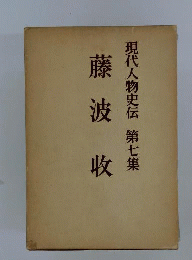 現代人物史伝 第七集
藤波収